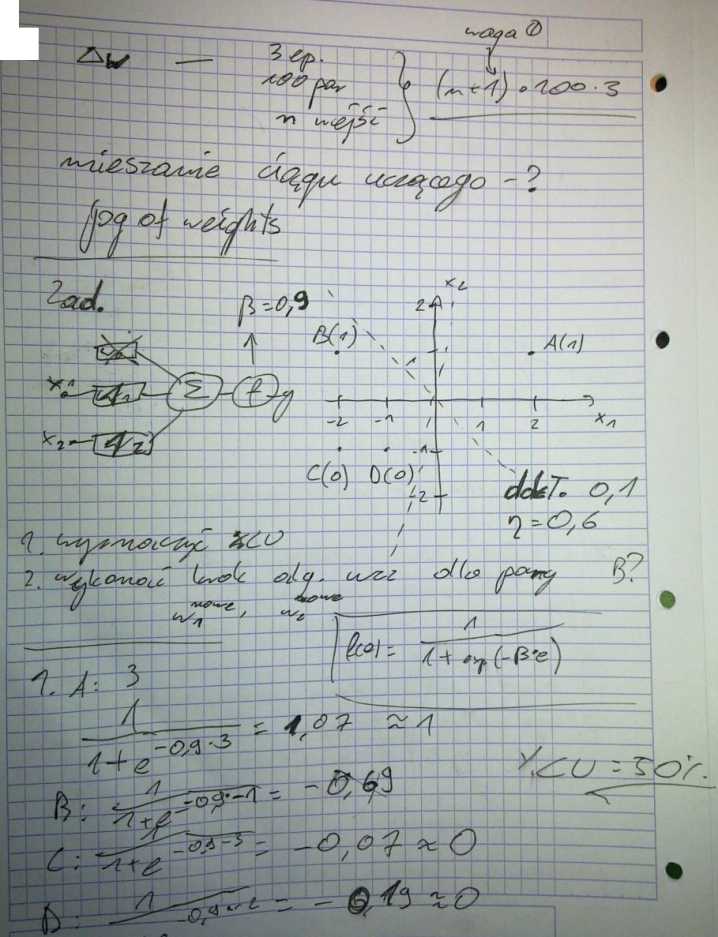 waga ①
Δw — 3 ep.
100 par
n wejść
(n+1) · 100 · 3
mieszanie ciągu uczącego - ?
jpg of weights
Zad.
β = 0,9
x₂
2
B(1)
A(1)
1
x₁
Σ
f
y
-2 -1 1 2
x₁
x₂
-1
C(0) D(0)
-2
dokł. 0,1
η = 0,6
1. wyznaczyć %CU
2. wykonać krok alg. wst dla pary B?
w₁ nowe, w₂ nowe
f(e) = 1 / (1 + exp(-β·e))
1. A: 3
1 / (1 + e^(-0,9·3)) = 1,07 ≈ 1
%CU = 50%
B: 1 / (1 + e^(-0,9·-1)) = -0,69
C: 1 / (1 + e^(-0,9·-3)) = -0,07 ≈ 0
D: 1 / -0,9·-2 = -0,19 ≈ 0